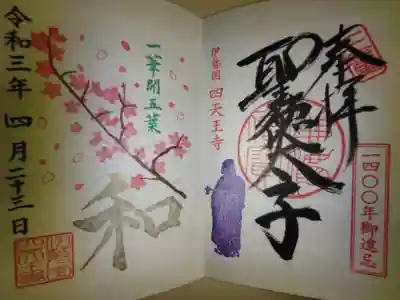 奉拝
聖徳太子
一四〇〇年御遠忌
伊勢国 四天王寺
一華開五葉
和
令和三年 四月二十三日